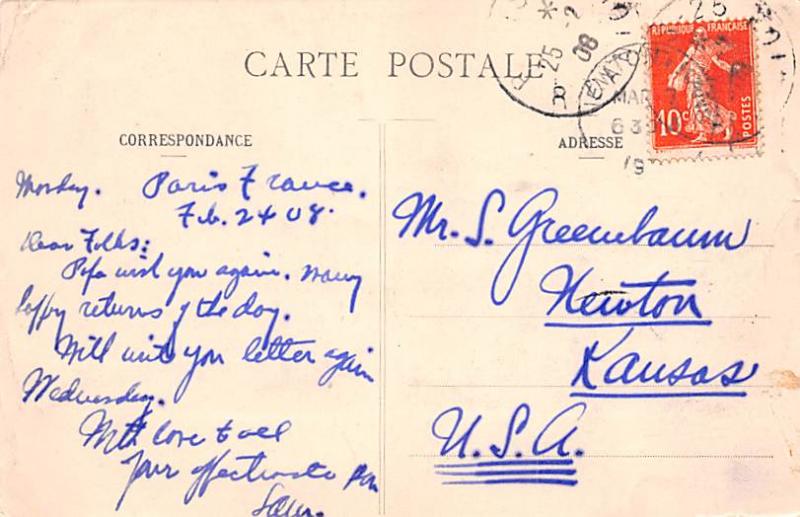 CARTE POSTALE
RÉPUBLIQUE FRANÇAISE
10c
POSTES
25
25 -2 08
MAR
630
CORRESPONDANCE
ADRESSE
Monday. Paris France.
Feb. 24 08.
Dear Folks:
Papa wish you again. many
happy returns of the day.
Will write you letter again
Wednesday.
With love to all
Your affectionate son
Mr. S. Greenbaum
Newton
Kansas
U.S.A.